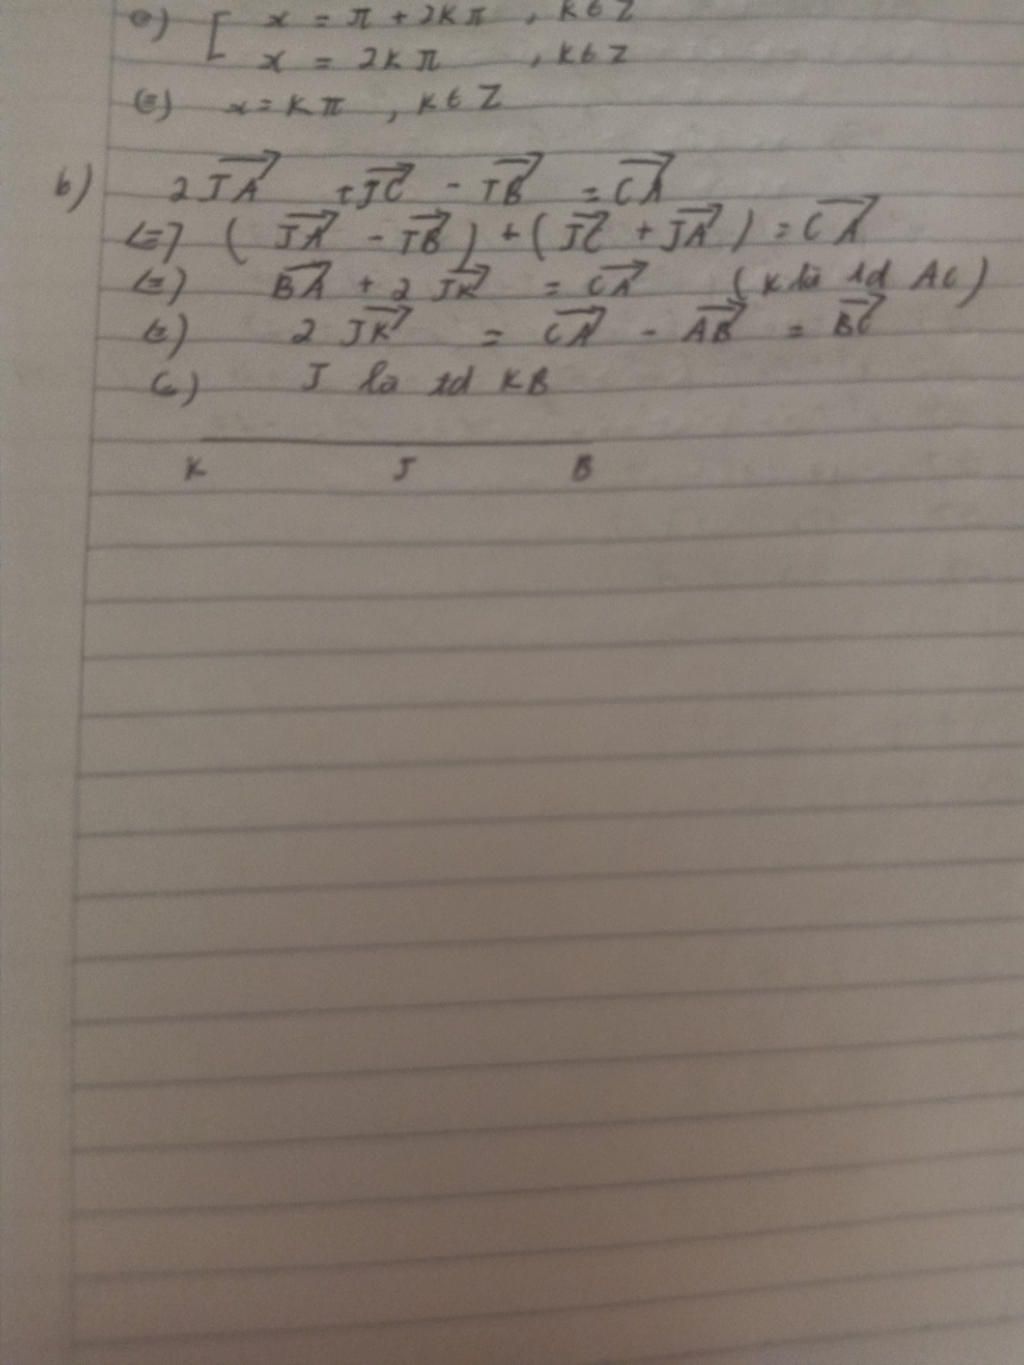 ⇔) [ x = π + 2kπ , k∈Z
x = 2kπ , k∈Z
⇔) x = kπ , k∈Z
b) 2JA + JC - JB = CA
⇔ (JA - JB) + (JC + JA) = CA
⇔) BA + 2JK = CA (K là td AC)
⇔) 2JK = CA - AB = BC
⇔) J là td KB
K J B